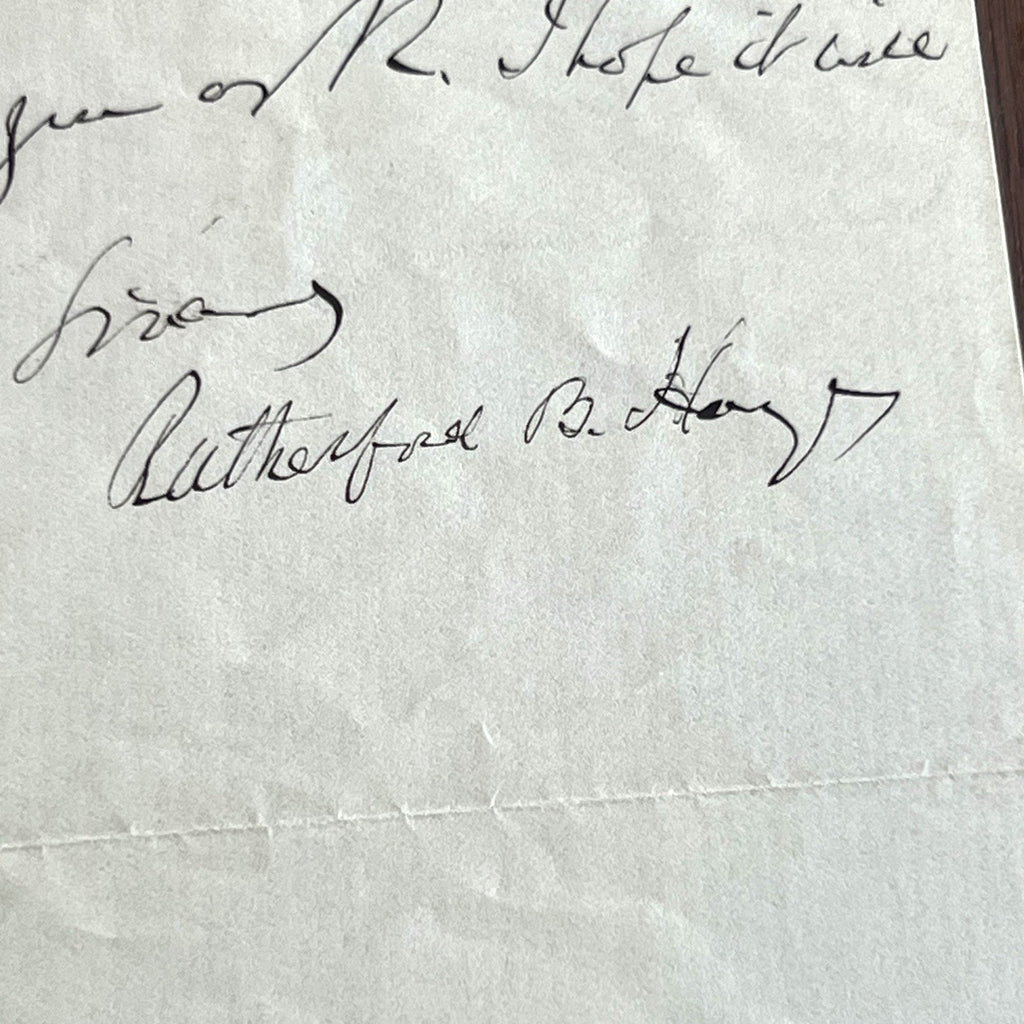 R. I hope it will
Sincerely
Rutherford B. Hayes